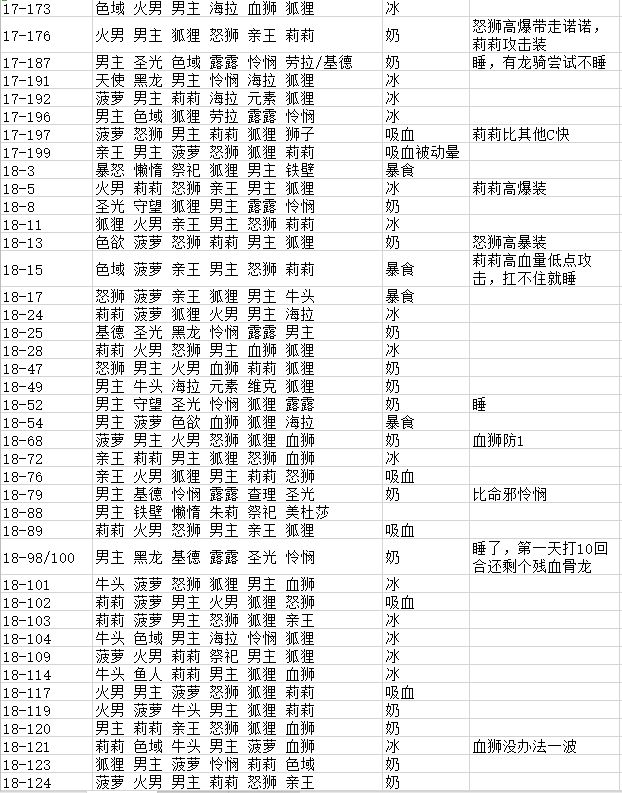 17-173 色域 火男 男主 海拉 血狮 狐狸 冰
17-176 火男 男主 狐狸 怒狮 亲王 莉莉 奶 怒狮高爆带走诺诺，
莉莉攻击装
17-187 男主 圣光 色域 露露 怜悯 劳拉/基德 奶 睡，有龙骑尝试不睡
17-191 天使 黑龙 男主 怜悯 海拉 狐狸 冰
17-192 菠萝 男主 莉莉 海拉 元素 狐狸 冰
17-196 男主 色域 狐狸 劳拉 露露 怜悯 冰
17-197 菠萝 怒狮 男主 莉莉 狐狸 狮子 吸血 莉莉比其他C快
17-199 亲王 男主 菠萝 怒狮 狐狸 莉莉 吸血被动晕
18-3 暴怒 懒惰 祭祀 狐狸 男主 铁壁 暴食
18-5 火男 莉莉 怒狮 亲王 男主 狐狸 冰 莉莉高爆装
18-8 圣光 守望 狐狸 男主 露露 怜悯 奶
18-11 狐狸 火男 亲王 男主 怒狮 莉莉 冰
18-13 色欲 菠萝 怒狮 莉莉 男主 狐狸 奶 怒狮高暴装
18-15 色域 菠萝 亲王 男主 怒狮 莉莉 暴食 莉莉高血量低点攻
击，扛不住就睡
18-17 怒狮 菠萝 亲王 狐狸 男主 牛头 暴食
18-24 莉莉 菠萝 狐狸 火男 男主 海拉 冰
18-25 基德 圣光 黑龙 怜悯 露露 男主 奶
18-28 莉莉 火男 怒狮 男主 血狮 狐狸 冰
18-47 怒狮 男主 火男 血狮 莉莉 狐狸 奶
18-49 男主 牛头 海拉 元素 维克 狐狸 奶
18-52 男主 守望 圣光 怜悯 狐狸 露露 奶 睡
18-54 男主 菠萝 色欲 血狮 狐狸 海拉 暴食
18-68 菠萝 男主 火男 怒狮 狐狸 血狮 奶 血狮防1
18-72 亲王 莉莉 男主 狐狸 怒狮 血狮 冰
18-76 亲王 火男 狐狸 男主 莉莉 怒狮 吸血
18-79 男主 基德 怜悯 露露 查理 圣光 奶 比命邪怜悯
18-88 男主 铁壁 懒惰 朱莉 祭祀 美杜莎
18-89 莉莉 火男 怒狮 男主 亲王 狐狸 吸血
18-98/100 男主 黑龙 基德 露露 圣光 怜悯 奶 睡了，第一天打10回
合还剩个残血骨龙
18-101 牛头 菠萝 怒狮 狐狸 男主 血狮 冰
18-102 莉莉 菠萝 男主 火男 狐狸 怒狮 吸血
18-103 莉莉 菠萝 男主 怒狮 狐狸 亲王 冰
18-104 牛头 色域 男主 海拉 怜悯 狐狸 冰
18-109 菠萝 火男 莉莉 祭祀 男主 狐狸 冰
18-114 牛头 鱼人 莉莉 男主 狐狸 血狮 冰
18-117 火男 男主 菠萝 怒狮 狐狸 莉莉 吸血
18-119 火男 菠萝 牛头 男主 狐狸 莉莉 奶
18-120 男主 莉莉 亲王 怒狮 狐狸 血狮 奶
18-121 莉莉 色域 牛头 男主 菠萝 血狮 冰 血狮没办法一波
18-123 狐狸 男主 菠萝 怜悯 莉莉 色域 奶
18-124 菠萝 火男 男主 莉莉 怒狮 亲王 奶